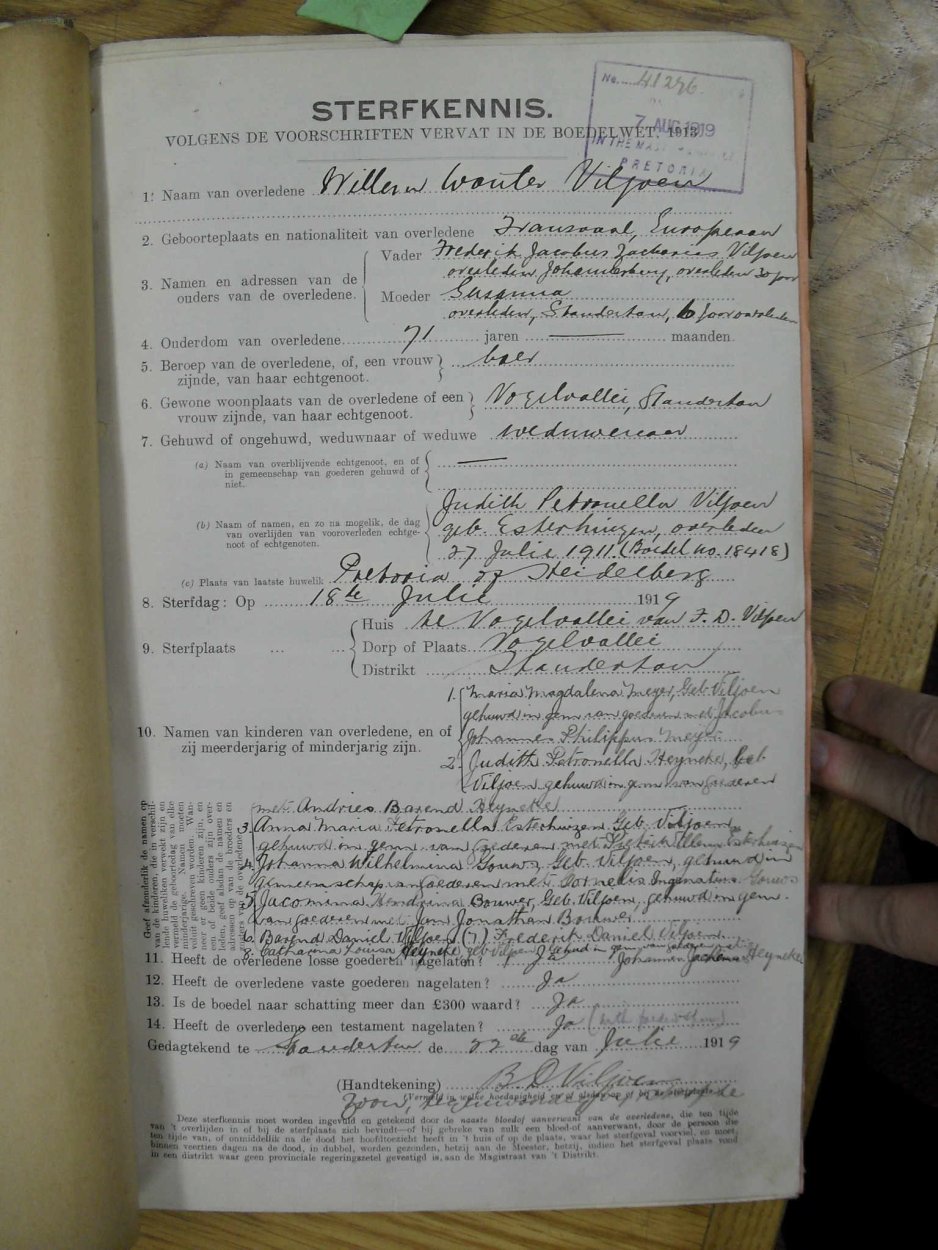 No. 41296
7 AUG 1919
IN THE MAS
PRETORIA
STERFKENNIS.
VOLGENS DE VOORSCHRIFTEN VERVAT IN DE BOEDELWET, 1913
1. Naam van overledene Willem Wouter Viljoen
2. Geboorteplaats en nationaliteit van overledene Transvaal, Europeaan
3. Namen en adressen van de ouders van de overledene.
Vader Frederik Jacobus Zacharias Viljoen
overleden Johannesburg, overleden 20 jaar
Moeder Susanna
overleden, Standerton, 6 jaar overleden
4. Ouderdom van overledene 71 jaren maanden.
5. Beroep van de overledene, of, een vrouw boer
zijnde, van haar echtgenoot.
6. Gewone woonplaats van de overledene of een Vogelvallei, Standerton
vrouw zijnde, van haar echtgenoot.
7. Gehuwd of ongehuwd, weduwnaar of weduwe weduwenaar
(a) Naam van overblijvende echtgenoot, en of
in gemeenschap van goederen gehuwd of
niet.
Judith Petronella Viljoen
(b) Naam of namen, en zo na mogelik, de dag
van overlijden van vooroverleden echtge-
noot of echtgenoten.
geb. Esterhuizen, overleden
27 Julie 1911. (Boedel no. 18418)
(c) Plaats van laatste huwelik Pretoria of Heidelberg
8. Sterfdag: Op 18de Julie 1919
9. Sterfplaats
Huis te Vogelvallei van F. D. Viljoen
Dorp of Plaats Vogelvallei
Distrikt Standerton
10. Namen van kinderen van overledene, en of
zij meerderjarig of minderjarig zijn.
1. Maria Magdalena Meyer, Geb Viljoen
gehuwd in gem van goederen met Jacobus
Johannes Philippus Meyer
2. Judith Petronella Heyneke, Geb
Viljoen gehuwd in gem van Goederen
met Andries Barend Heyneke
3. Anna Maria Petronella Esterhuizen Geb Viljoen
gehuwd in gem. van goederen met Esterhuizen
4. Johanna Wilhelmina Gouws Geb Viljoen, gehuwd in
gemeenschap van Goederen met Cornelis Gouws
5. Jacomina Bouwer, Geb Viljoen, gehuwd in gem.
van goederen met Jan Jonathan Bouwer
6. Barend Daniel Viljoen (7) Frederik Daniel Viljoen
8. Catharina Louisa Heyneke geb Viljoen gehuwd in gem van goederen met
Johannes Heyneke
Geef afzonderlik de namen op
van de kinderen, die in verschil-
lende huweliken verwekt zijn en
vermeld de geboortedag van elke
minderjarige. Namen moeten
voluit geschreven worden. Wan-
neer er geen kinderen zijn, en
een of beide ouders zijn over-
leden, geef alsdan de namen en
adressen op van de broeders en
zusters van de overledene.
11. Heeft de overledene losse goederen nagelaten? Ja
12. Heeft de overledene vaste goederen nagelaten? Ja
13. Is de boedel naar schatting meer dan £300 waard? Ja
14. Heeft de overledene een testament nagelaten? Ja
Gedagtekend te Standerton de 22ste dag van Julie 1919
(Handtekening) B D Viljoen
(Vermeld in welke hoedanigheid
zoon,
Deze sterfkennis moet worden ingevuld en getekend door de naaste bloedof aanverwant van de overledene, die ten tijde
van 't overlijden in of bij de sterfplaats zich bevindt—of bij gebreke van zulk een bloed-of aanverwant, door de persoon die
ten tijde van, of onmiddellik na de dood het hoofdtoezicht heeft in 't huis of op de plaats, waar het sterfgeval voorviel, en moet,
binnen veertien dagen na de dood, in dubbel, worden gezonden, hetzij aan de Meester, hetzij, indien het sterfgeval plaats vond
in een distrikt waar geen provinciale regeringszetel gevestigd is, aan de Magistraat van 't Distrikt.